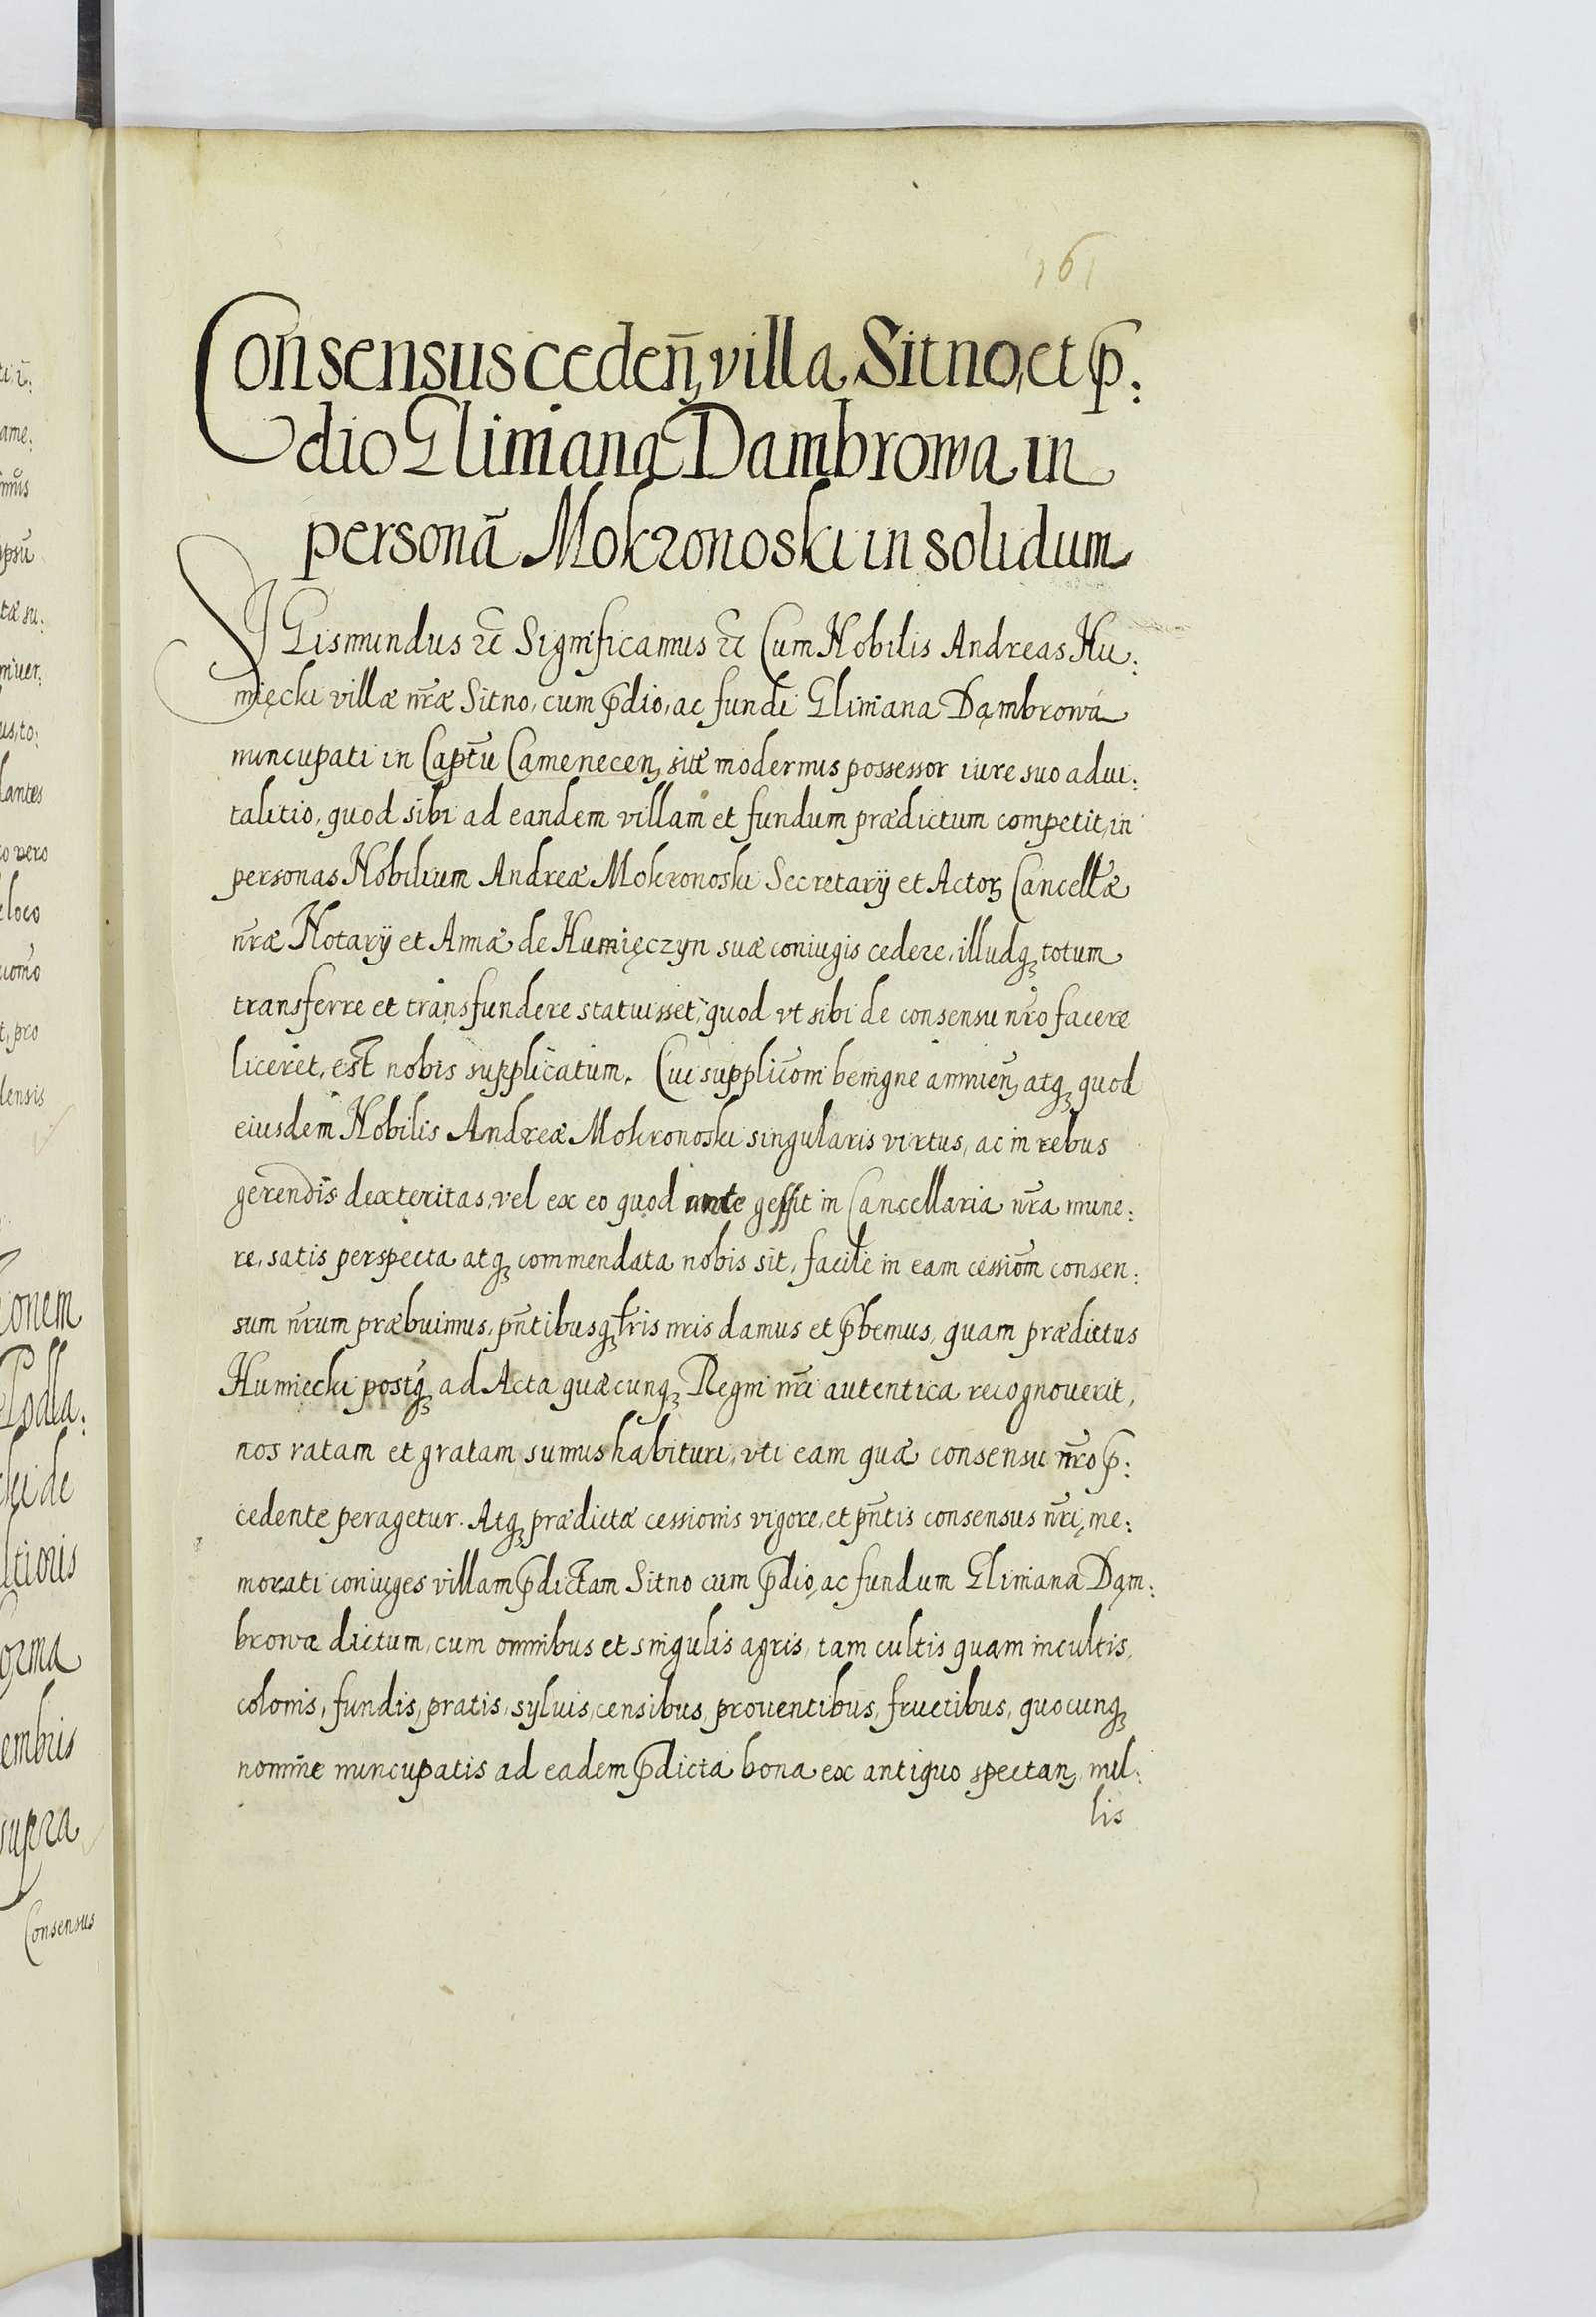 161
Consensus cedeñ, villa Sitno, et p̱:
dio Gliniana Dambrowa in
personã Mokronoski in solidum
SIGismundus &c̃ Significamus &c̃ Cum Nobilis Andreas Hu:
mięcki villæ nr̃æ Sitno, cum p̱dio, ac fundi Gliniana Dąmbrowa
nuncupati in Capt̃u Camenecen, sitæ modernus possessor iure suo adui:
talitio, quod sibi ad eandem villam et fundum prædictum competit, in
personas Nobilium Andreæ Mokronoski Secretarij et Actoꝝ Cancell̃æ
nr̃æ Notarij et Annæ de Humięczyn suæ coniugis cedere, illudq̨ totum
transferre et transfundere statuisset, quod vt sibi de consensu nr̃o facere
liceret, est nobis supplicatum. Cui supplic̃oni benigne annueñ, atq̨ quod
eiusdem Nobilis Andreæ Mokronoski singularis virtus, ac in rebus
gerendis dexteritas, vel ex eo quod ante gessit in Cancellaria nr̃a mune:
re, satis perspecta atq̨ commendata nobis sit, facile in eam cessiõm consen:
sum nr̃um præbuimus, pñtibusq̨ l̃ris nr̃is damus et p̱bemus, quam prædictus
Humiecki postq̨ ad Acta quæcunq̨ Regni nr̃i autentica recognouerit,
nos ratam et gratam sumus habituri, vti eam quæ consensu nr̃o p̱:
cedente peragetur. Atq̨ prædictæ cessionis vigore, et pñtis consensus nr̃i, me:
morati coniuges villam p̱dictam Sitno cum p̱dio, ac fundum Gliniana Dąm:
browa dictum, cum omnibus et singulis agris, tam cultis quam incultis,
colonis, fundis, pratis, syluis, censibus, prouentibus, fructibus, quocunq̨
nomine nuncupatis ad eadem p̱dicta bona ex antiquo spectan, nul:
lis
onem
Podla:
cki de
ltioris
orma
embris
supra
Consensus